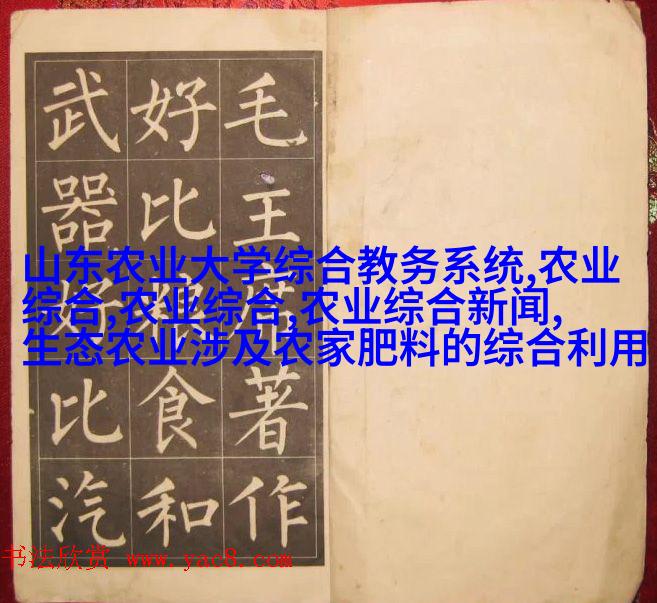 毛主席著作
好比粮食和
武器好比汽
山东农业大学综合教务系统,农业
综合,农业综合,农业综合新闻,
生态农业涉及农家肥料的综合利用
书法欣赏 www.yac8.com